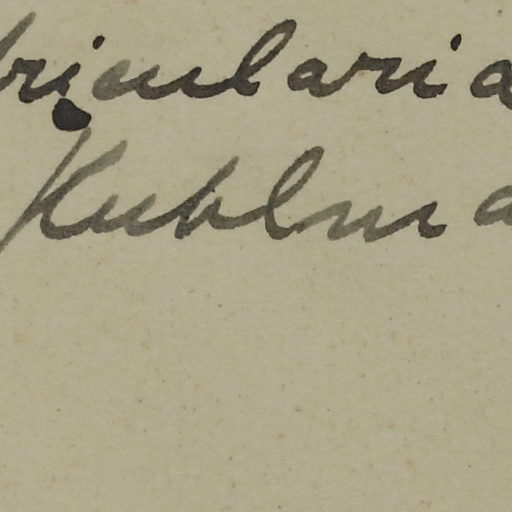 bricularia
Kuhlma